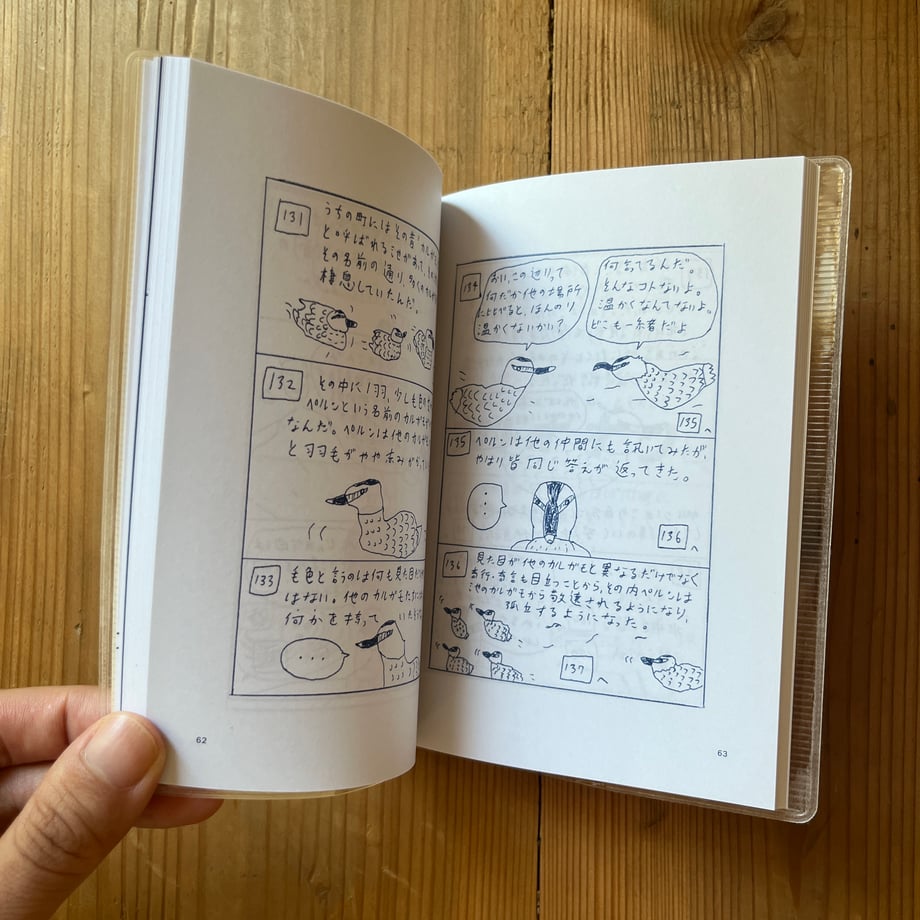 131
うちの町にはその昔、カルガ
と呼ばれる池があって、
その名前の通り、多くのカルガ
棲息していたんだ。
132
その中に1羽、少しも色の
ペルンという名前のカルガモが
なんだ。ペルンは他のカルガモ
と羽毛がやや赤みがかって
133
毛色と言うのは何も見た目だけ
はない。他のカルガモたちには
何かを持って
...
62
134
おい、この辺りって
何だか他の場所
にくらべると、ほんのり
温かくないかい?
何言てるんだ。
そんなコトないよ。
温かくなんてないよ。
どこも一緒だよ
135へ
135
ペルンは他の仲間にも訊いてみたが、
やはり皆同じ答えが返ってきた。
...
136へ
136
見た目が他のカルガモと異なるだけでなく
奇行・奇言も目立つことから、その内ペルンは
他のカルガモから敬遠されるようになり、
孤立するようになった。
137へ
63